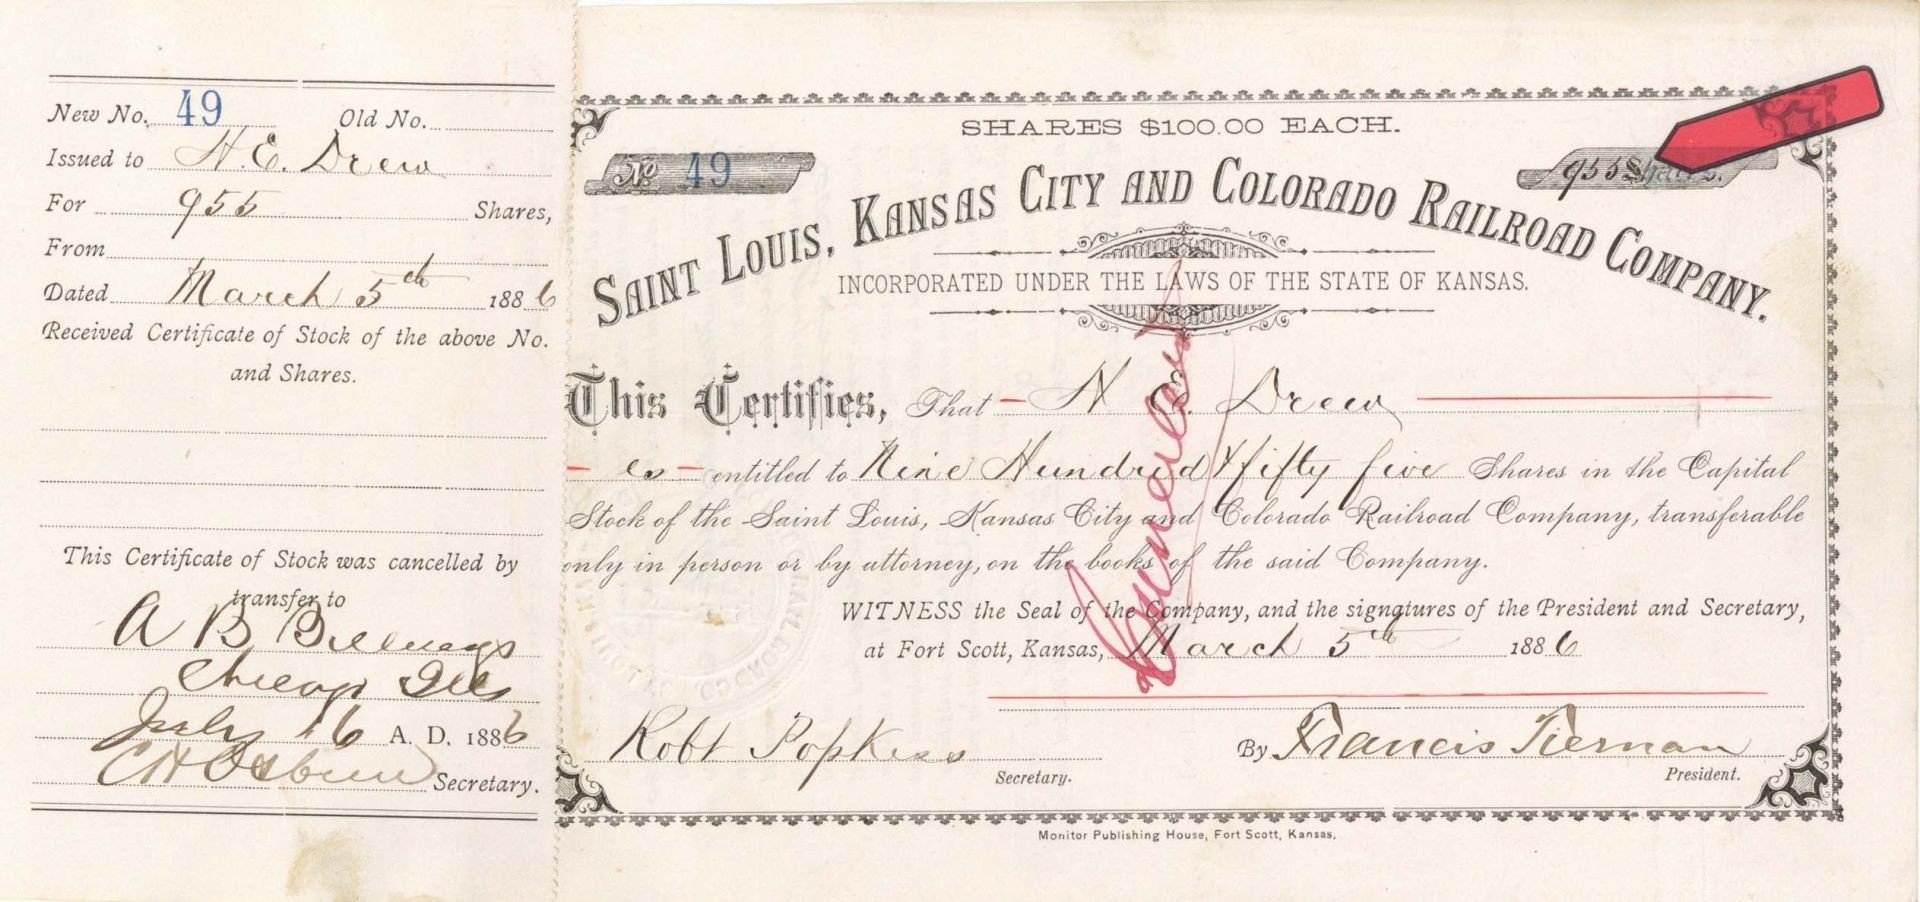 New No. 49 Old No.
Issued to H. E. Drew
For 955 Shares,
From
Dated March 5th 1886
Received Certificate of Stock of the above No.
and Shares.
This Certificate of Stock was cancelled by
transfer to
A B Billings
Chicago Ills
July 16 A. D. 1886
C H Osburn Secretary.
SHARES $100.00 EACH.
No 49
955 Shares.
SAINT LOUIS, KANSAS CITY AND COLORADO RAILROAD COMPANY.
INCORPORATED UNDER THE LAWS OF THE STATE OF KANSAS.
This Certifies, That H. E. Drew
is entitled to Nine Hundred & fifty five Shares in the Capital
Stock of the Saint Louis, Kansas City and Colorado Railroad Company, transferable
only in person or by attorney, on the books of the said Company.
Cancelled
WITNESS the Seal of the Company, and the signatures of the President and Secretary,
at Fort Scott, Kansas, March 5th 1886
Robt Popkess By Francis Tiernan
Secretary. President.
Monitor Publishing House, Fort Scott, Kansas.